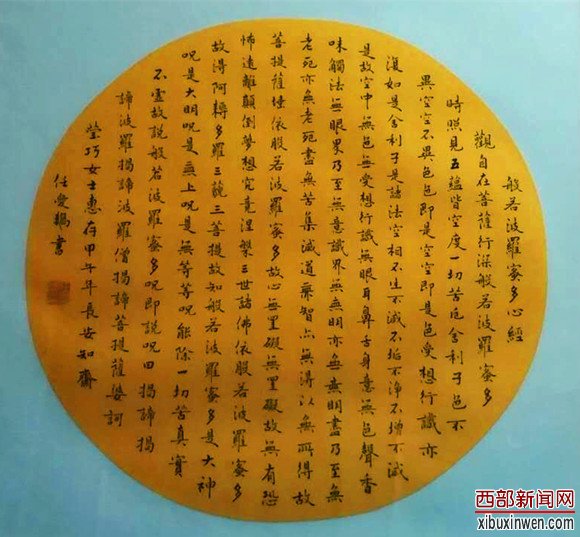 般若波羅蜜多心經
觀自在菩薩行深般若波羅蜜多
時照見五蘊皆空度一切苦厄舍利子色不
異空空不異色色即是空空即是色受想行識亦
復如是舍利子是諸法空相不生不滅不垢不淨不增不減
是故空中無色無受想行識無眼耳鼻舌身意無色聲香
味觸法無眼界乃至無意識界無無明亦無無明盡乃至無
老死亦無老死盡無苦集滅道無智亦無得以無所得故
菩提薩埵依般若波羅蜜多故心無罣礙無罣礙故無有恐
怖遠離顛倒夢想究竟涅槃三世諸佛依般若波羅蜜多
故得阿耨多羅三藐三菩提故知般若波羅蜜多是大神
呪是大明呪是無上呪是無等等呪能除一切苦真實
不虛故說般若波羅蜜多呪即說呪曰揭諦揭
諦波羅揭諦波羅僧揭諦菩提薩婆訶
瑩巧女士惠存甲午年長安知齋
任愛書
西部新闻网
xibuxinwen.com